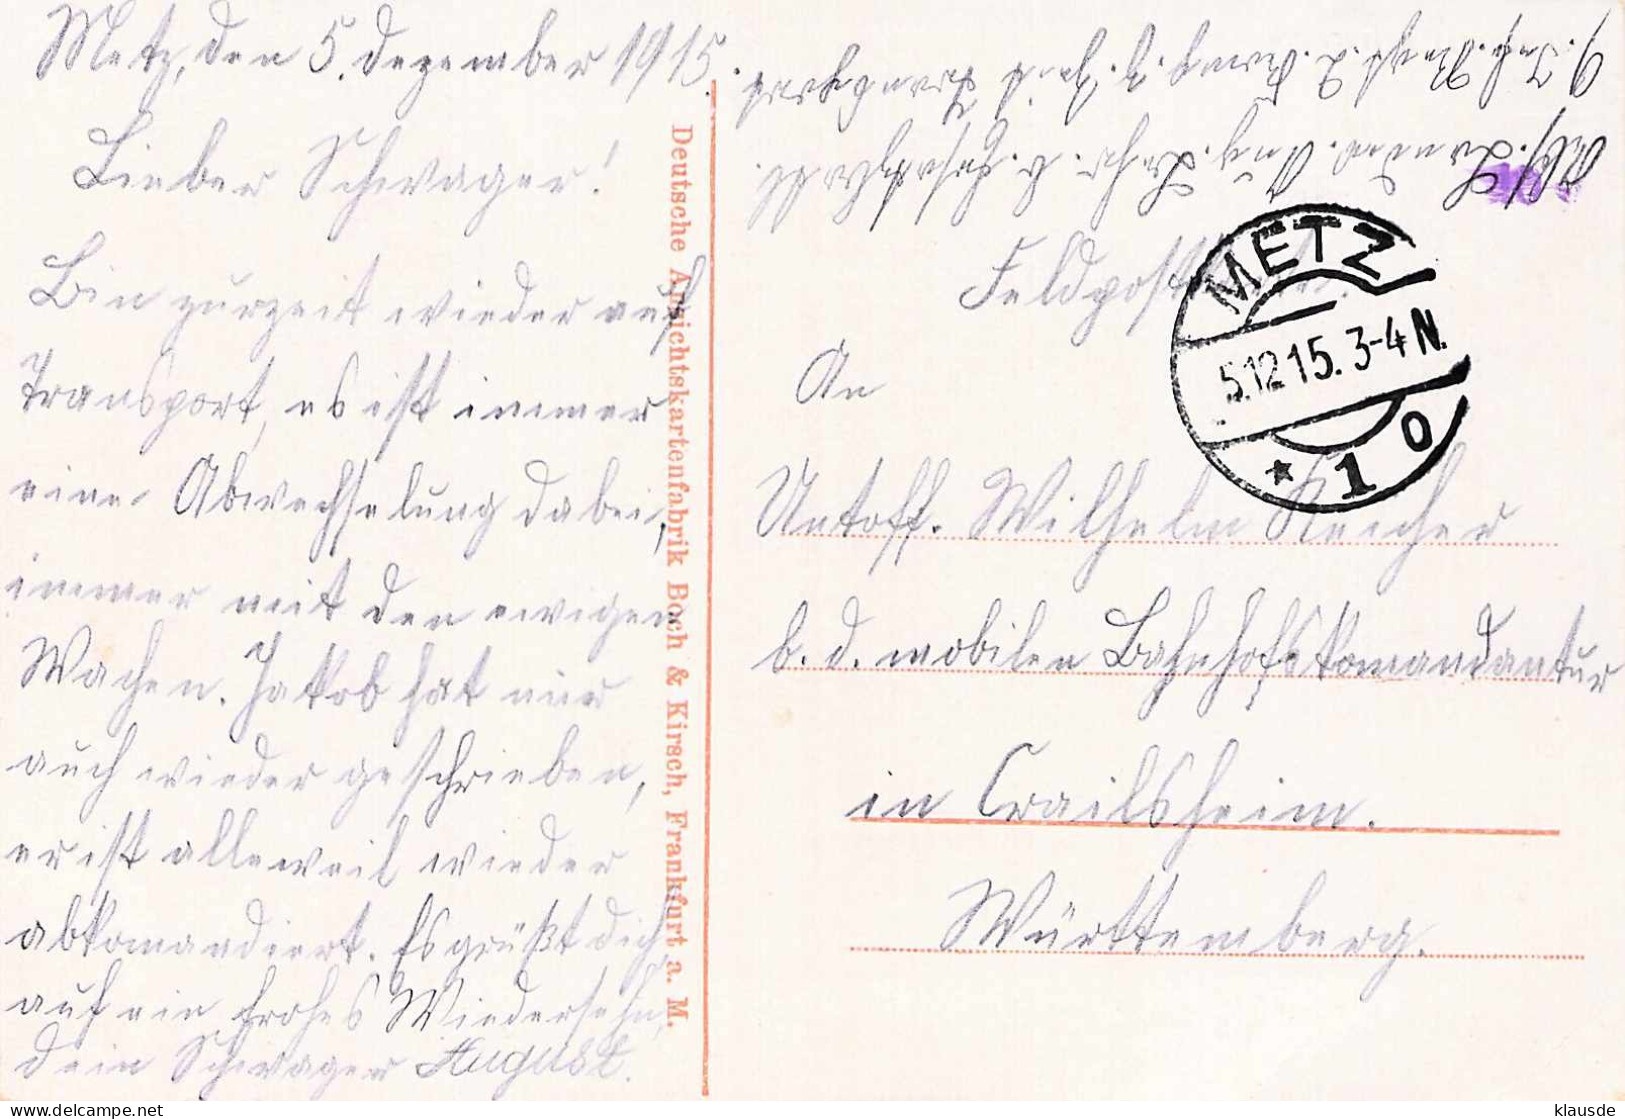 Metz, den 5. Dezember 1915.
Lieber Schwager!
Bin zurzeit wieder auf
Transport, es ist immer
eine Abwechselung dabei,
immer mit den ewigen
Wachen. Jakob hat mir
auch wieder geschrieben,
er ist alleweil wieder
abkomandiert. Es grüßt dich
auf ein frohes Wiedersehn,
dein Schwager August.
Deutsche Ansichtskartenfabrik Boch & Kirsch, Frankfurt a. M.
Feldpost
METZ
5.12.15. 3-4 N.
* 1 o
An
Untoff. Wilhelm Reicher
b. d. mobilen Bahnhofskomandantur
in Crailsheim.
Württemberg.